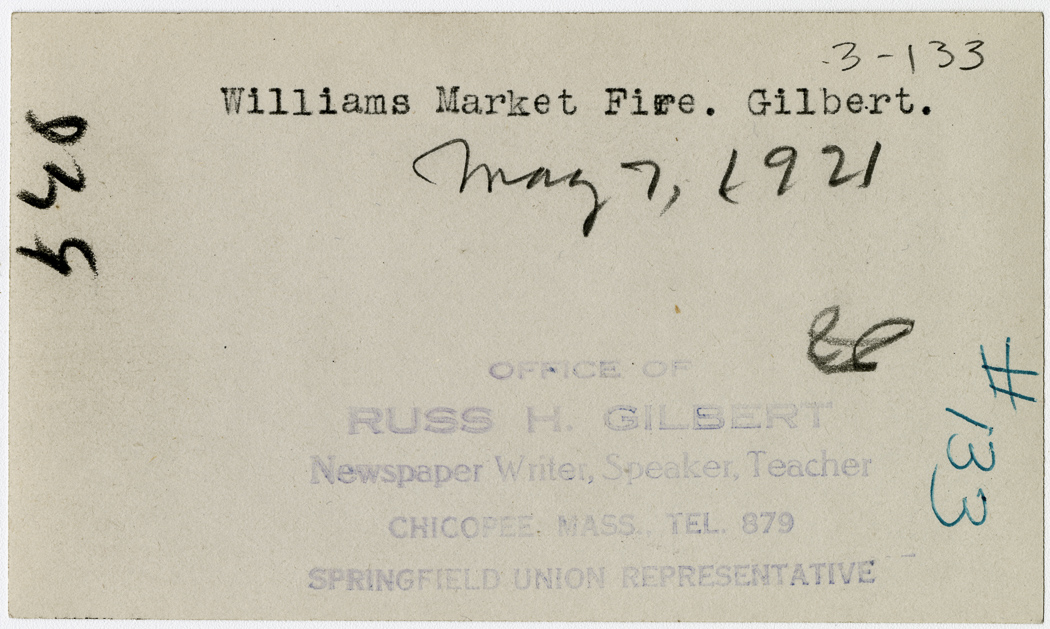 3-133
Williams Market Fire. Gilbert.
May 7, 1921
OFFICE OF
RUSS H. GILBERT
Newspaper Writer, Speaker, Teacher
CHICOPEE. MASS., TEL. 879
SPRINGFIELD UNION REPRESENTATIVE
#133